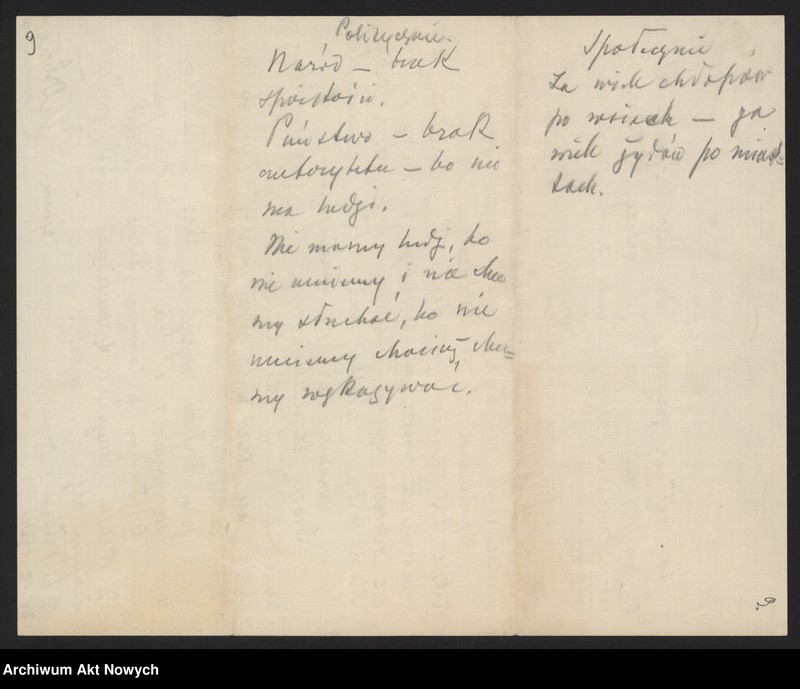 9
Politycznie
Naród – brak
spoistości.
Państwo – brak
autorytetu – bo nie
ma ludzi.
Nie mamy ludzi, bo
nie umiemy i nie chce
my słuchać, bo nie
umiemy chociaż chce=
my rozkazywać.
Społecznie
Za wiele chłopów
po wsiach – za
wiele żydów po mias=
tach.
9.
Archiwum Akt Nowych